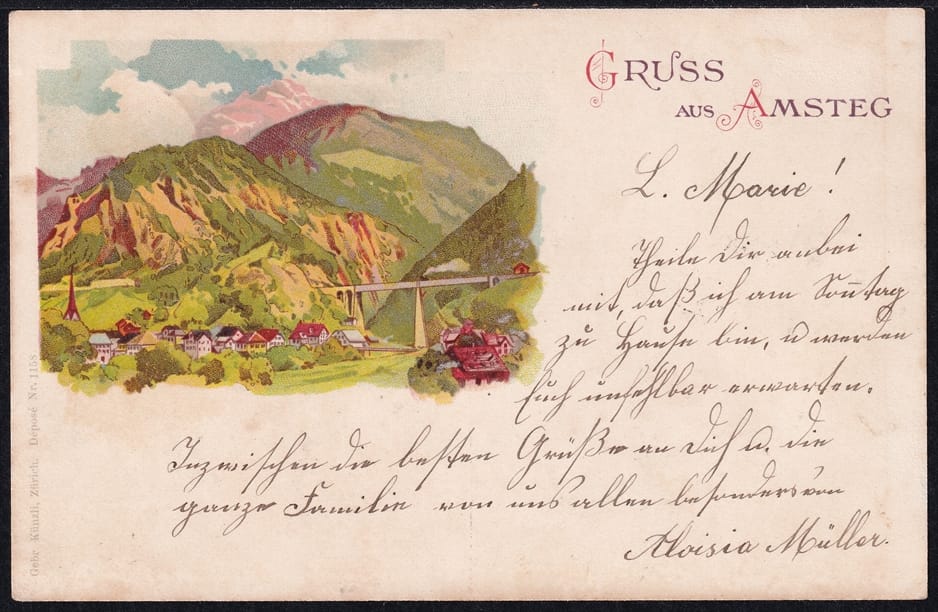 GRUSS
AUS AMSTEG
L. Marie!
Theile Dir anbei
mit, daß ich am Sonntag
zu Hause bin, u werden
Euch unfehlbar erwarten.
Inzwischen die besten Grüße an Dich u. die
ganze Familie von uns allen besonders von
Aloisia Müller.
Gebr. Künzli, Zürich. Déposé Nr. 1158